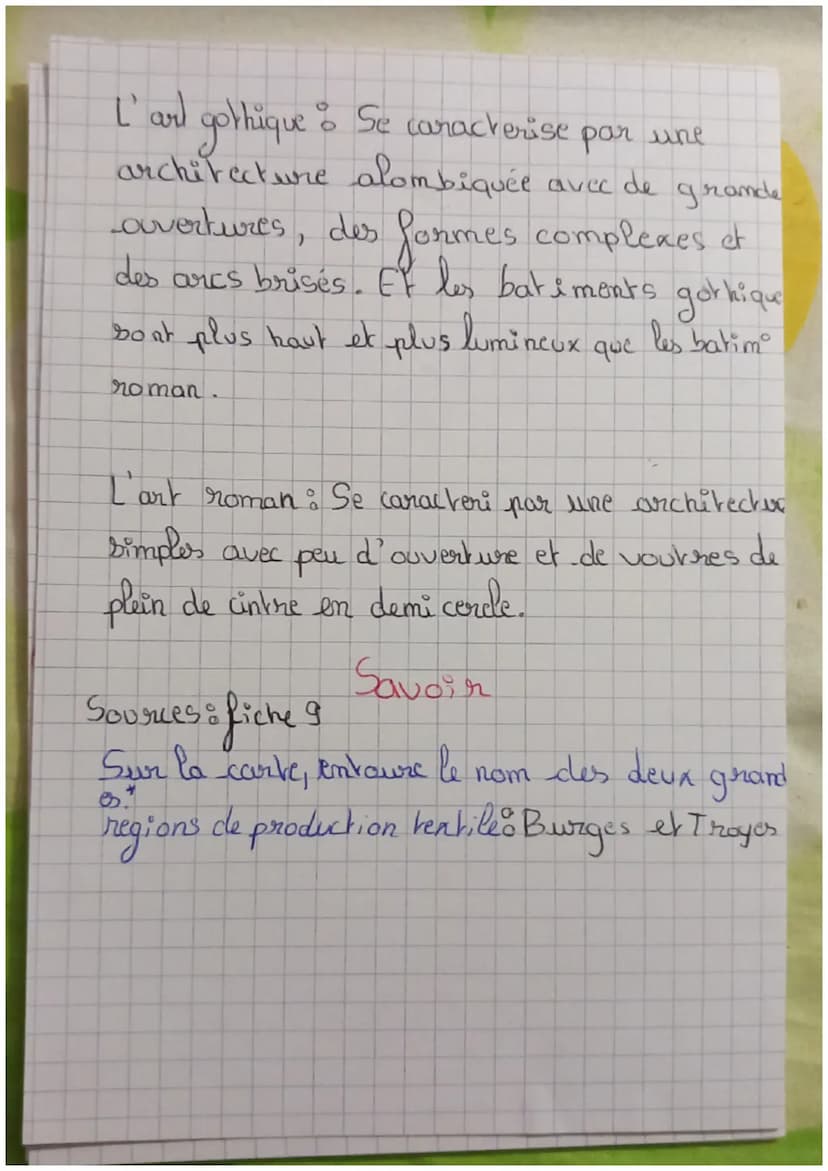 L'art gothique : Se caracterise par une
architecture alombiquée avec de grande
ouvertures, des formes complexes et
des arcs brisés. Et les batiments gothique
sont plus haut et plus lumineux que les batim°
roman.
L'art roman : Se caracteri par une architectur
simples avec peu d'ouverture et de voutres de
plein de cintre en demi cercle.
Savoir
Sources : fiche 9
Sur la carte, entoure le nom des deux grand
es*
regions de production textile : Burges et Troyes